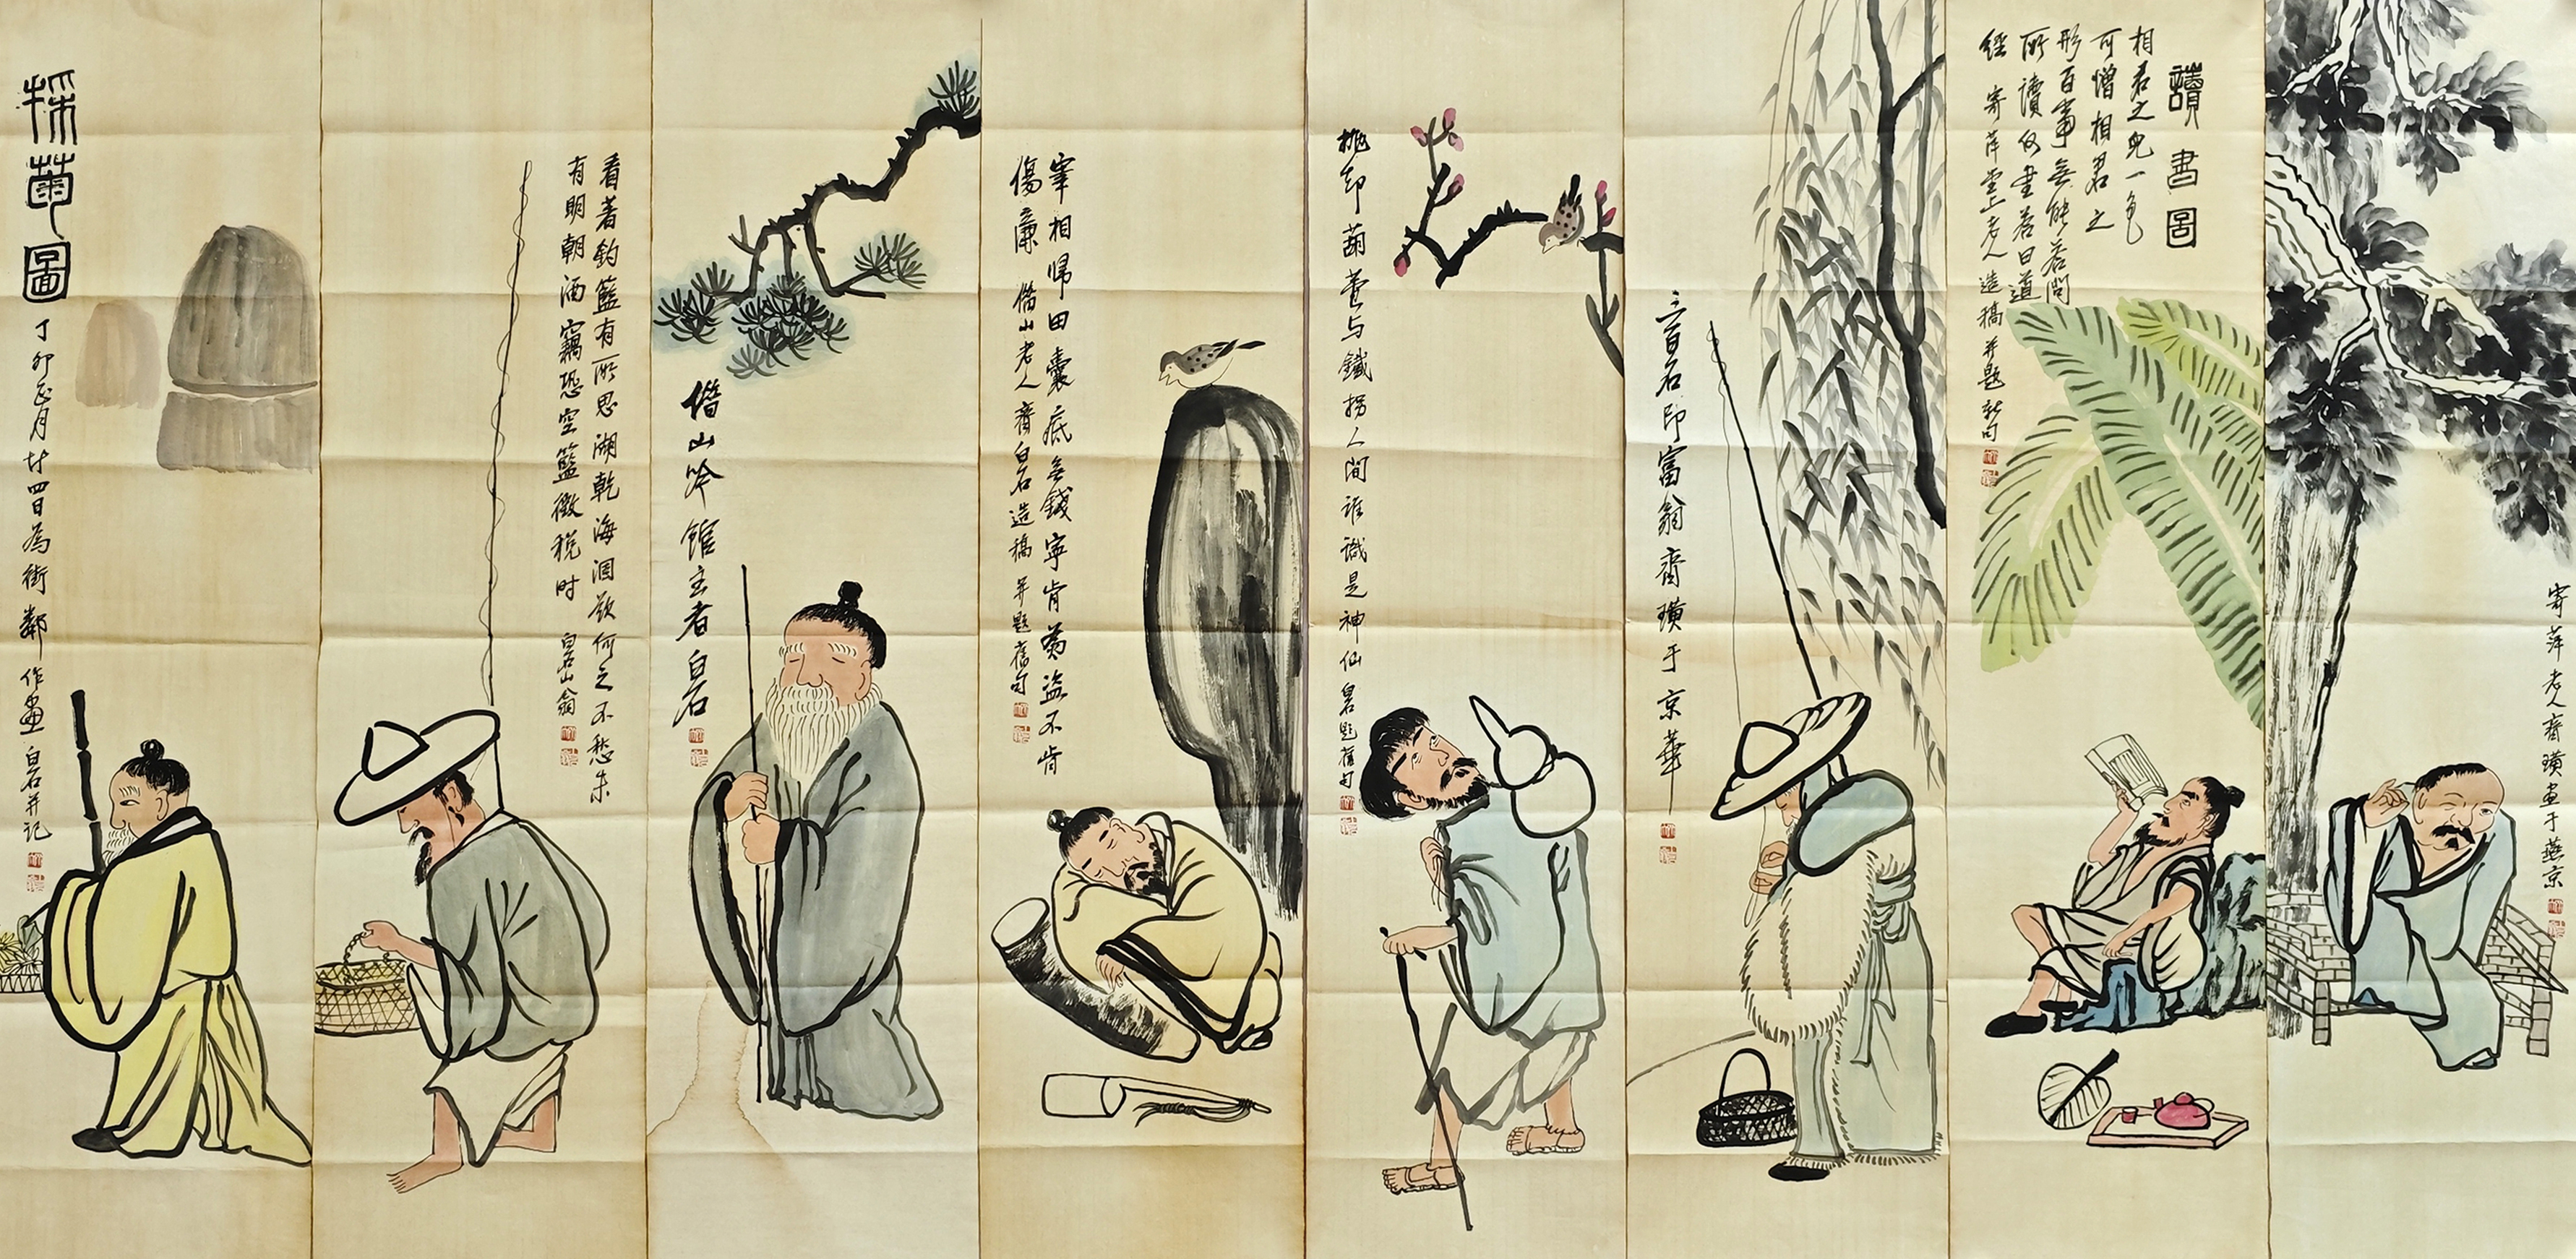 寄萍老人齊璜畫于燕京
讀書圖
相君之皃一色
可憎相君之
形百事無能若問
所讀何書答曰道
經 寄萍堂上老人造稿并題新句
三百石印富翁齊璜于京華
拋却葫蘆与鐵拐人間誰識是神仙 白石題舊句
宰相歸田囊底無錢寧肯為盜不肯
傷廉 借山老人齊白石造稿并題舊句
借山吟館主者白石
看著釣籃有所思湖乾海涸欲何之不愁未
有明朝酒竊恐空籃徵税时 白石山翁
採菊圖 丁卯正月廿四日為街鄰作畫 白石并記